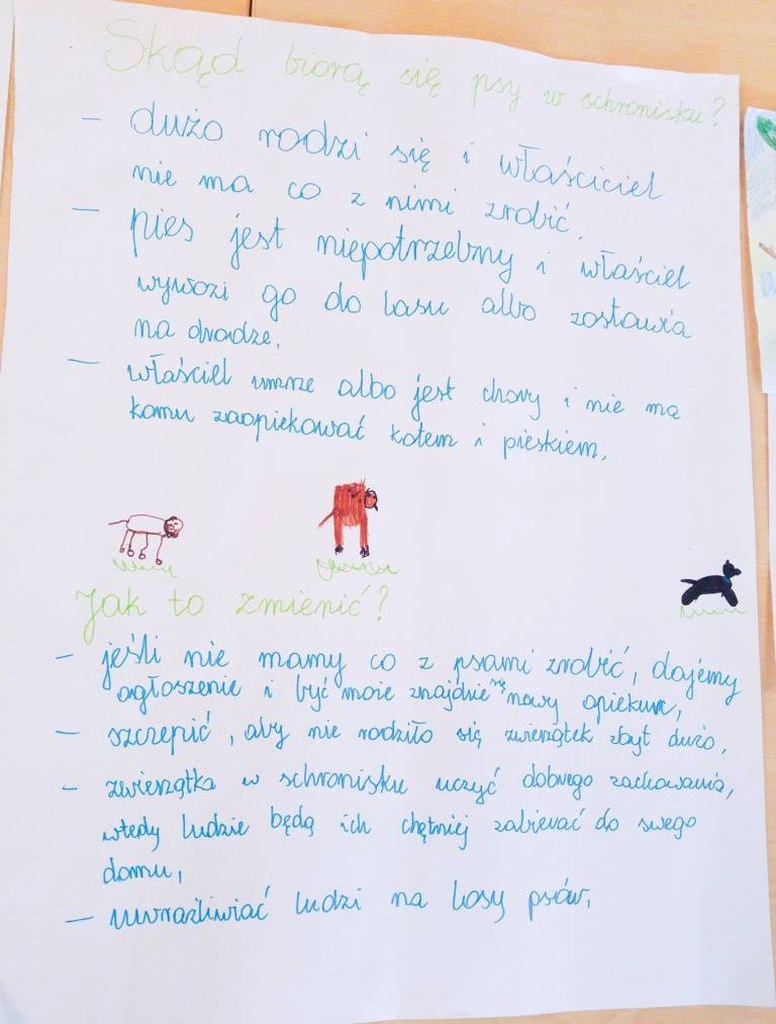 Skąd biorą się psy w schronisku?
- dużo rodzi się i właściciel
nie ma co z nimi zrobić.
- pies jest niepotrzebny i właściel
wywozi go do lasu albo zostawia
na drodze.
- właściel umrze albo jest chory i nie ma
komu zaopiekować kotem i pieskiem.
Jak to zmienić?
- jeśli nie mamy co z psami zrobić, dajemy
ogłoszenie i być może znajdzie się nowy opiekun,
- szczepić, aby nie rodziło się zwierzątek zbyt dużo,
- zwierzątka w schronisku uczyć dobrego zachowania,
wtedy ludzie będą ich chętniej zabierać do swego
domu,
- uwrażliwiać ludzi na losy psów.